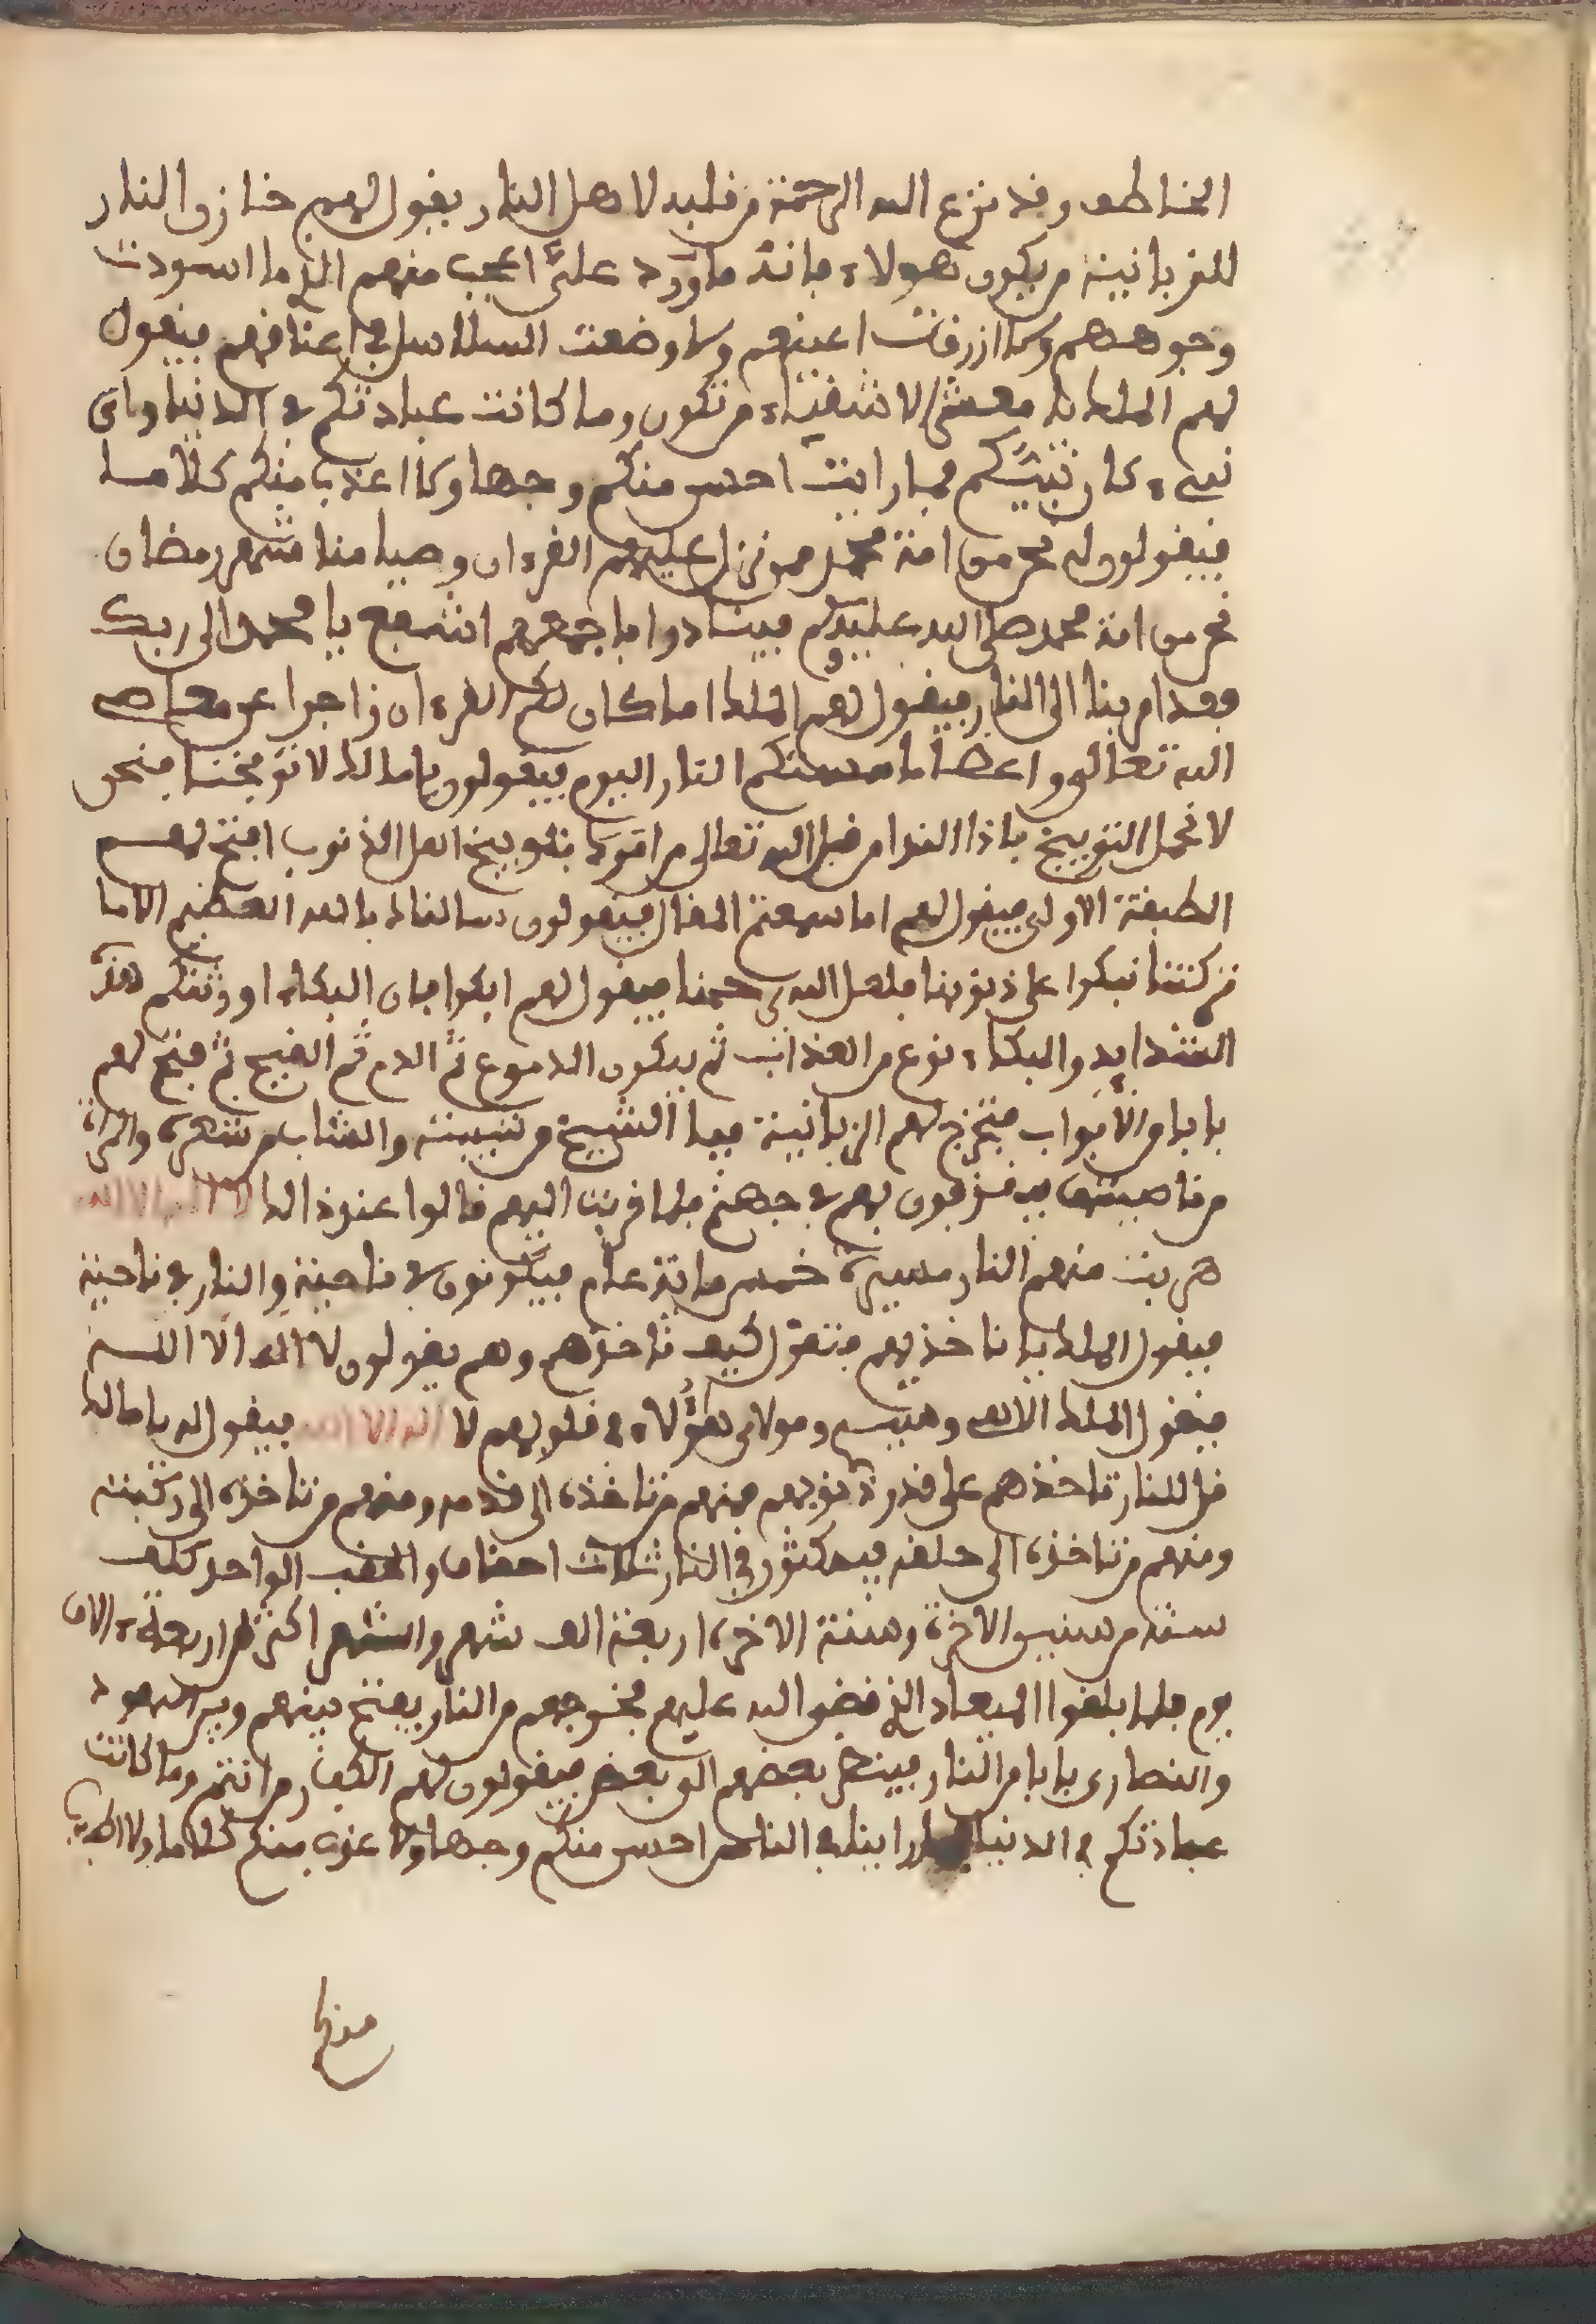 الخاطف وقد نزع الله الرحمة من قلبه لاهل النار يقول لهم خازن النار
للزبانية من يكون هولاء فانه ما ورد علي اعجب منهم الذ ما اسودت
وجوههم ولا ازرقت اعينهم ولا وضعت السلاسل في اعناقهم فيقول
لهم الملك يا معشر الاشقياء من تكون وما كانت عبادتكم في الدنيا واي
نبيء كان نبيكم فما رايت احسن منكم وجها ولا اعذب منكم كلاما
فيقولون نحن من امة محمد ممن نزل عليهم القرءان وصيامنا شهر رمضان
نحن من امة محمد صلى الله عليه وسلم فينادوا باجمعهم اشفع يا محمد الى ربك
فقد امر بنا الى النار فيقول لهم الملك اما كان لكم القرءان زاجرا عن معاصي
الله تعالى واعظا ما مستكم النار اليوم فيقولون يا مالك لا توبخنا فنحن
لا نحمل التوبيخ باذا الندا من قبل الله تعالى من امرك بتوبيخ اهل الذنوب افتح لهم
الطبقة الاولى فيقول لهم اما سمعتم المقال فيقولون سالناك بالله العظيم الا ما
تركتنا نبكوا على ذنوبنا فلعل الله يرحمنا فيقول لهم ابكوا فان البكاء اورثكم هذه
الشدايد والبكاء نوع من العذاب ثم يبكون الدموع ثم الدم ثم القيح ثم فتح لهم
بابا من الابواب فتخرج لهم الزبانية فيها الشيخ من شيبته والشاب من شعره والمراة
من ناصيتها فيقذفون بهم في جهنم فلما قربت اليهم قالوا عند ذالك لا اله الا الله
هربت منهم النار مسيرة خمس ماية عام فيكونون في ناحية والنار في ناحية
فيقول الملك يا نار خذيهم فتقول كيف ناخذهم وهم يقولون لا اله الا الله
فيقول الملك الاهي وسيدي ومولاي هؤلاء في قلوبهم لا اله الا الله فيقول له يا مالك
قل للنار تاخذهم على قدر ذنوبهم فمنهم من تاخذه الى قدمه ومنهم من تاخذه الى ركبته
ومنهم من تاخذه الى حلقه فيمكثون في النار ثلاث احقاب والحقب الواحد كالف
سنة من سنين الاخرة وسنة الاخرة اربعة الف شهر والشهر اكثر من اربعة ءالاف
يوم فلما بلغوا الميعاد الذي قضى الله عليهم بخروجهم من النار يفتح بينهم وبين اليهود
والنصارى بابا من النار فينظر بعضهم الى بعض فيقولون لهم الكفار من انتم وما كانت
عبادتكم في الدنيا فما راينا في الناس احسن منكم وجها ولا اعذب منكم كلاما ولا اطيب
منكم